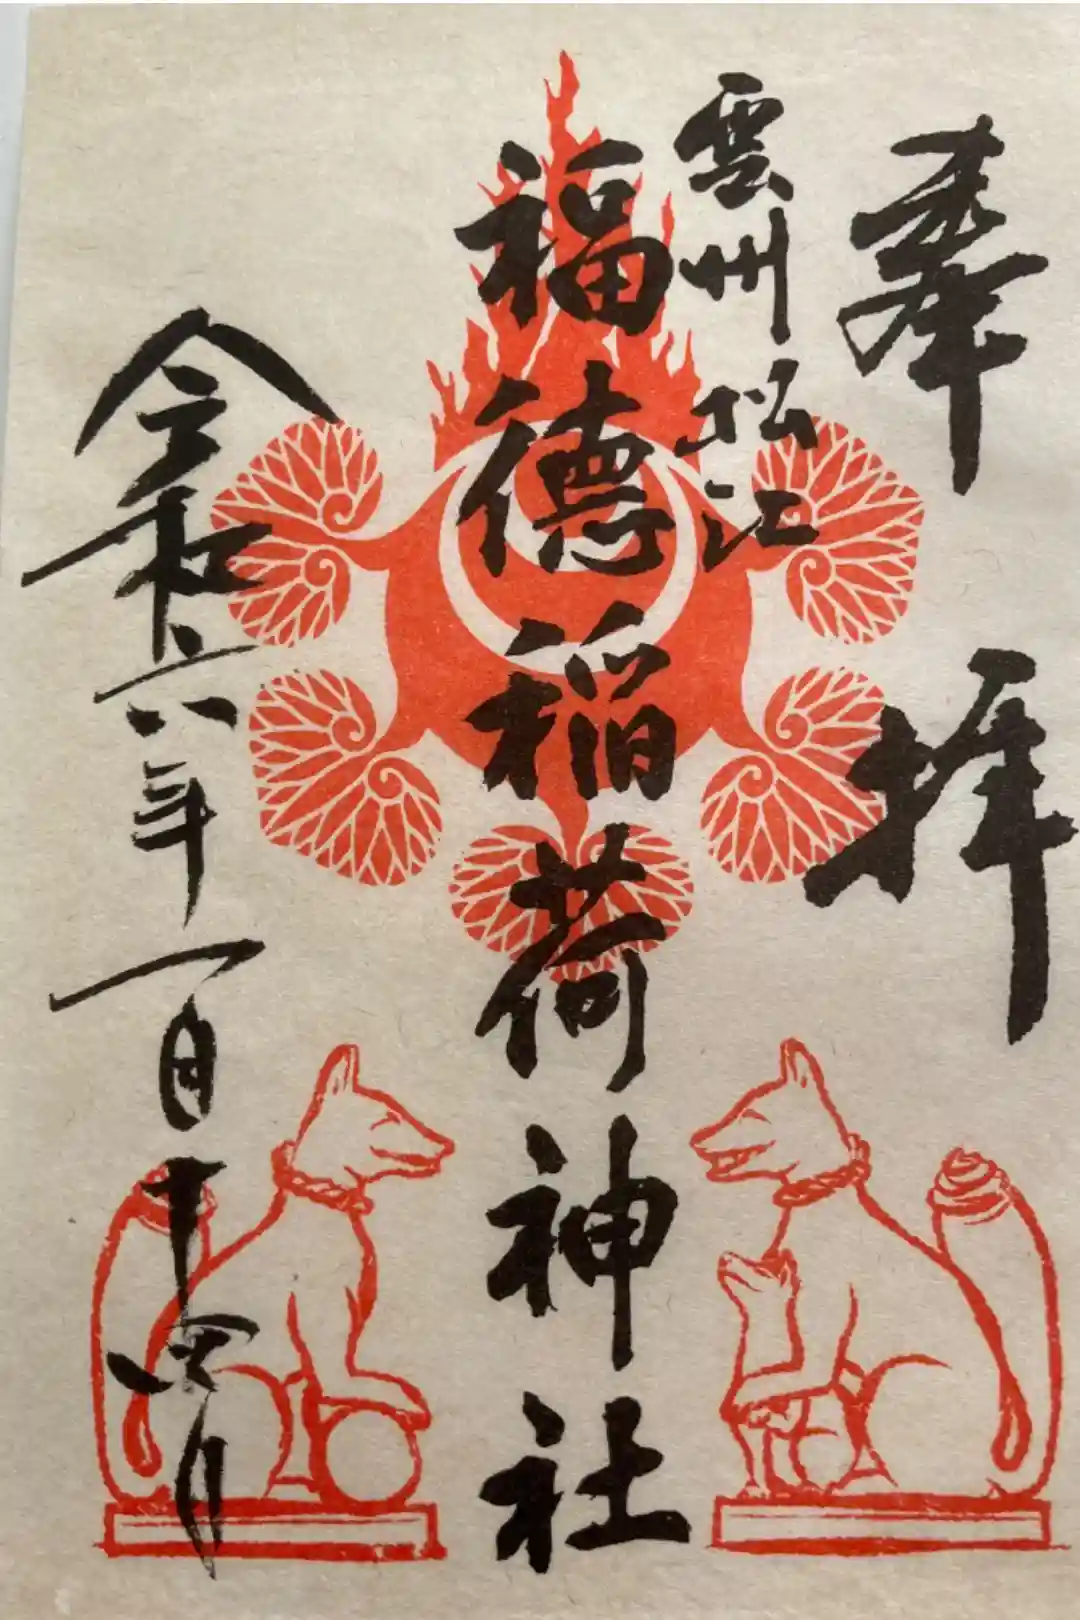 奉拝
雲州松江
福德稲荷神社
令和六年一月十六日